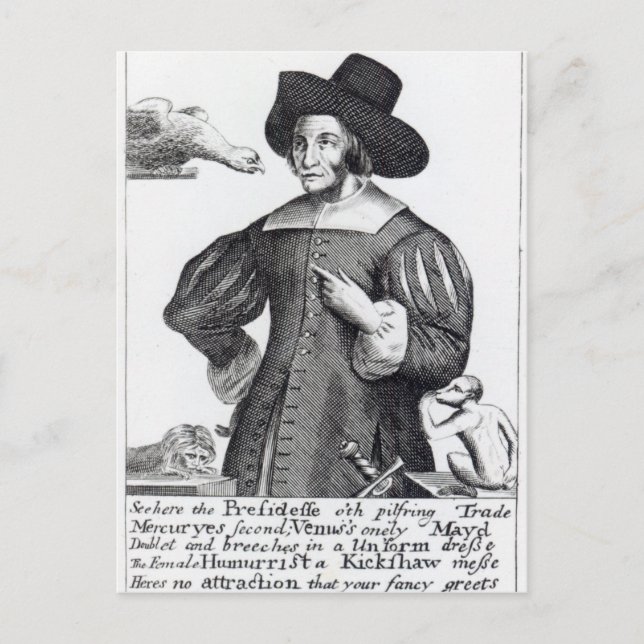 See here the Preſideſſe o'th pilfring Trade
Mercuryes ſecond; Venus's onely Mayd
Doublet and breeches in a Un'form dreſse
The Female Humurriſt a Kickſhaw meſse
Heres no attraction that your fancy greets